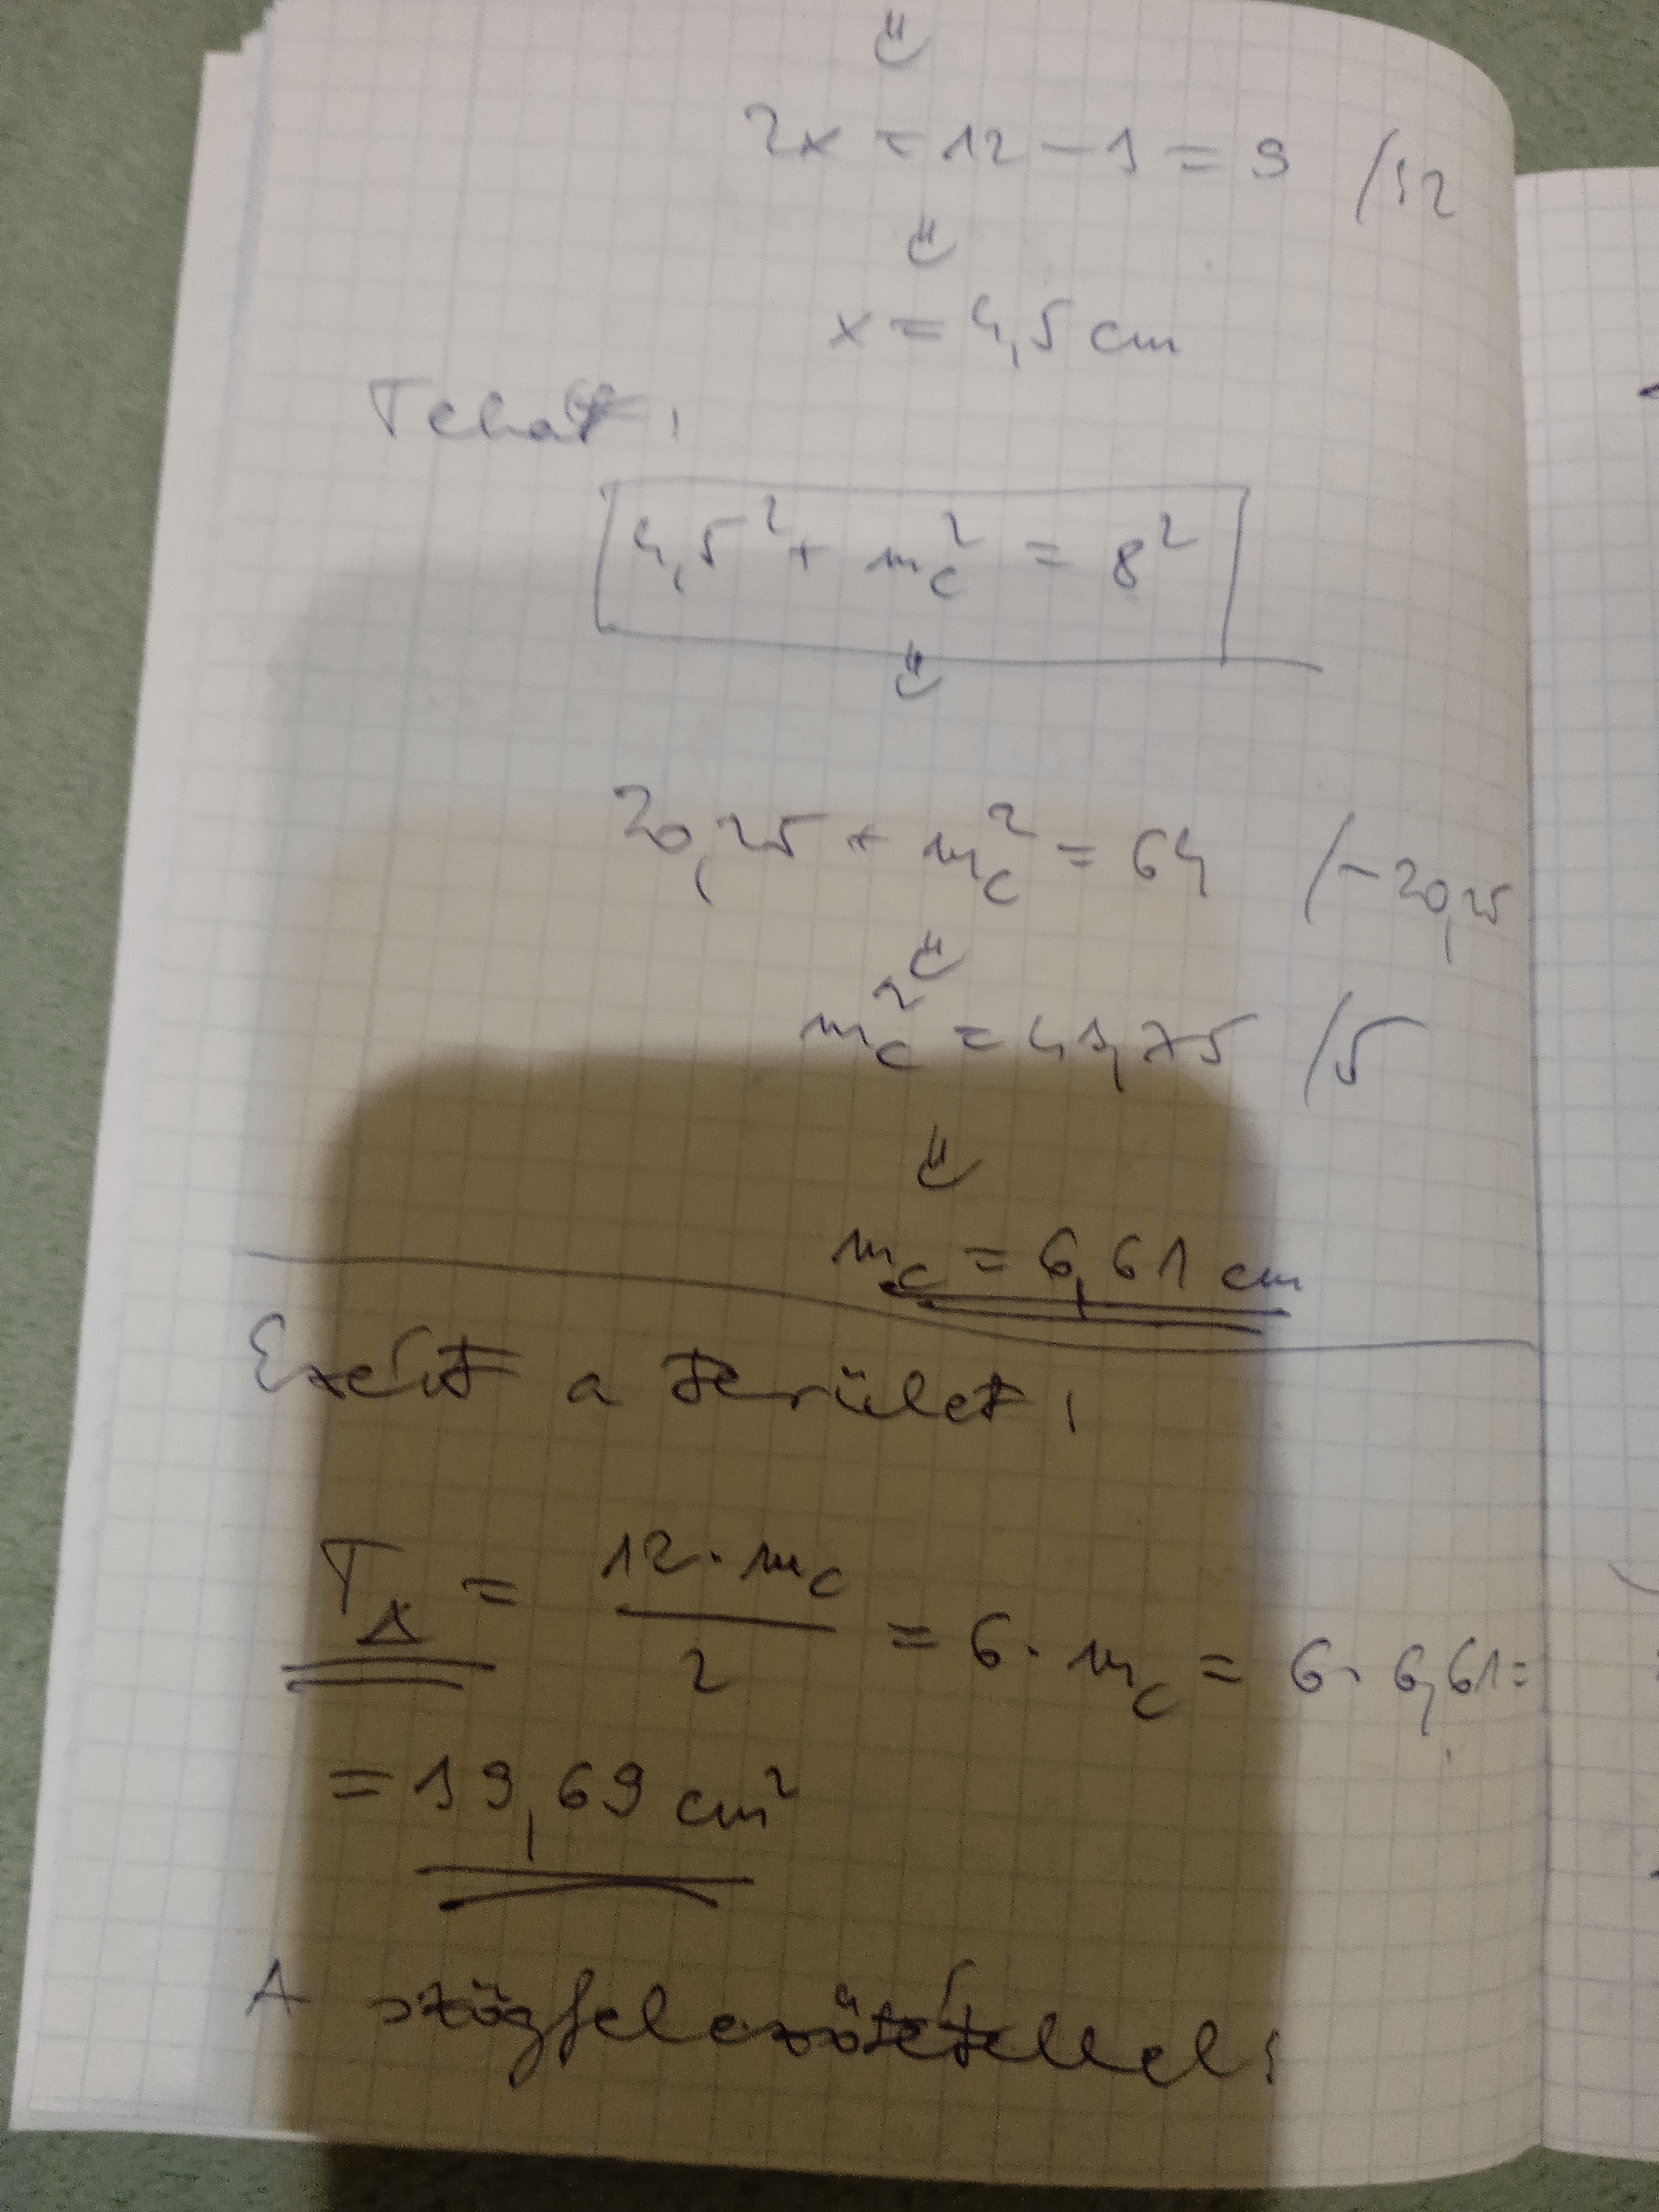 ⇓
2x = 12 - 3 = 9 /:2
⇓
x = 4,5 cm
Tehát:
4,5² + m_c² = 8²
⇓
20,25 + m_c² = 64 /-20,25
⇓
m_c² = 43,75 /√
⇓
m_c = 6,61 cm
Ezért a terület:
T_Δ = (12 · m_c)/2 = 6 · m_c = 6 · 6,61 =
= 39,69 cm²
A szögfelezőtétellel: